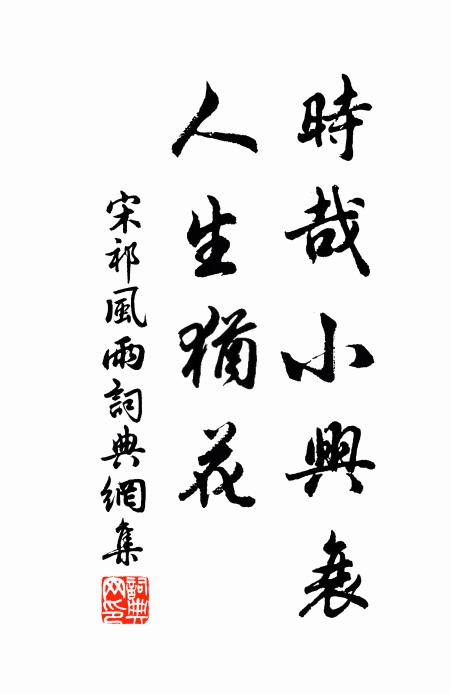 時哉小興衰
人生猶花
宋祁風雨詞典網集
詞典網印